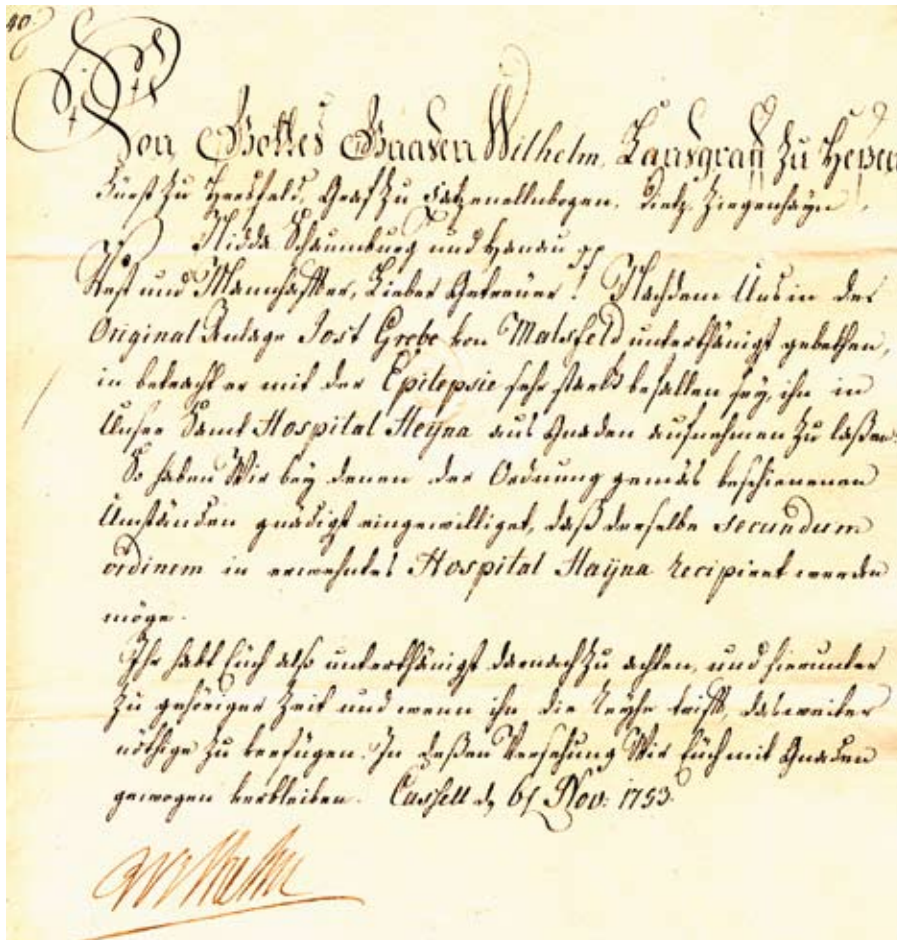 40.
Von Gottes Gnaden Wilhelm, Landgraff zu Heßen
Fürst zu Herßfeld, Graf zu Catzenellnbogen, Dietz, Ziegenhayn,
Nidda Schaumburg und Hanau pp
Vest und Mannhaffter, Lieber Getreuer! Nachdem Uns in der
Original Anlage Jost Grebe von Malsfeld unterthänigst gebethen,
in betracht er mit der Epilepsie sehr starck befallen sey, ihn in
Unser Samt Hospital Heyna aus Gnaden aufnehmen zu laßen.
So haben Wir bey denen der Ordnung gemäs beschienenen
Umständen gnädigst eingewilliget, daß derselbe secundum
ordinem in erwehntes Hospital Hayna recipirt werden
möge.
Ihr habt Euch also unterthänigst darnach zu achten, und hierunter
zu gehöriger Zeit und wenn ihn die Reyhe trifft, das weiter
nöthige zu verfügen. In deßen Versehung Wir Euch mit Gnaden
gewogen verbleiben. Cassell d. 6t Nov: 1753.
Wilhelm